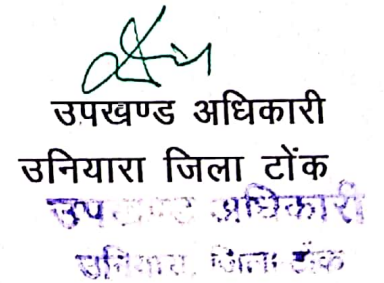 उपखण्ड अधिकारी
उनियारा जिला टोंक
उपखण्ड अधिकारी
उनियारा जिला टोंक